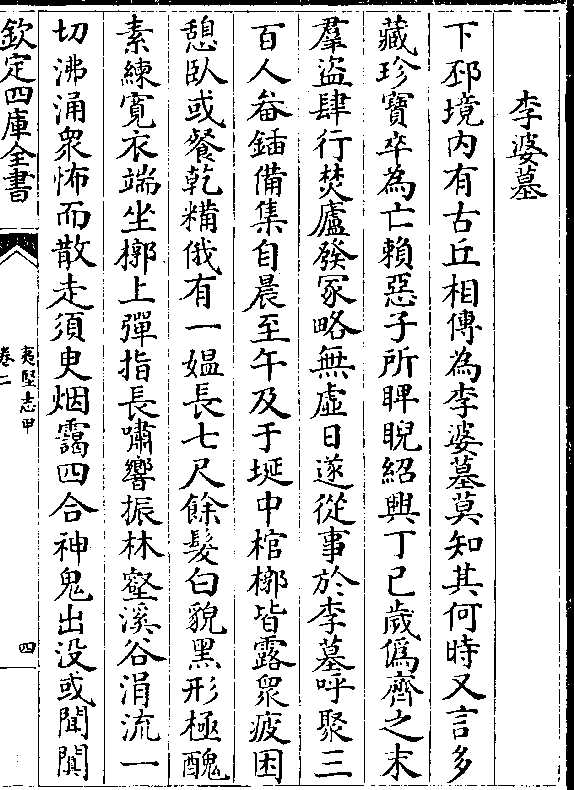 李婆墓
下邳境内有古丘相傳為李婆墓莫知其何時又言多
藏珍寳卒為亡賴惡子所睥睨紹興丁巳歲偽齊之末
羣盜肆行焚廬發冢略無虛日遂從事於李墓呼聚三
百人畚鍤備集自晨至午及于埏中棺槨皆露衆疲困
憩臥或餐乾糒俄有一媪長七尺餘髪白貌黒形極醜
素練寛衣端坐槨上彈指長嘯響振林壑溪谷涓流一
切沸涌衆怖而散走須臾烟靄四合神鬼出没或聞闐
欽定四庫全書
夷堅志甲
卷二
四